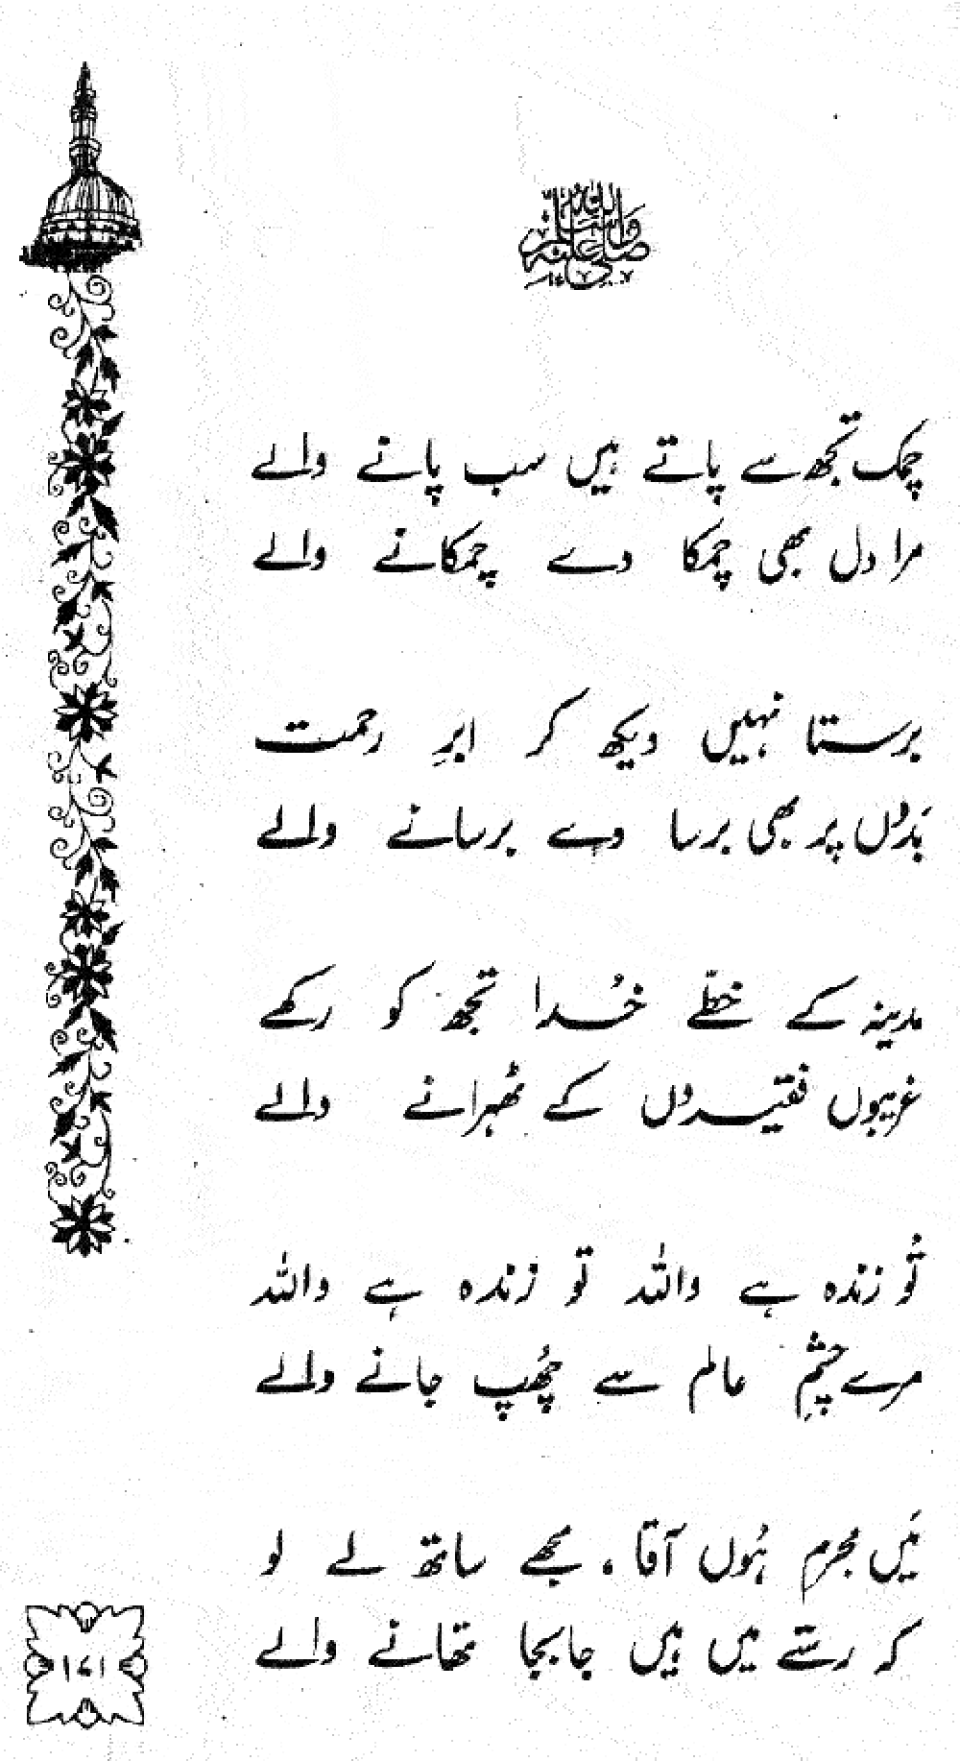 صلی اللہ علیہ وسلم
چمک تجھ سے پاتے ہیں سب پانے والے
مرا دل بھی چمکا دے چمکانے والے
برستا نہیں دیکھ کر ابرِ رحمت
بَدوں پر بھی برسا دے برسانے والے
مدینہ کے خطّے خُدا تجھ کو رکھے
غریبوں فقیروں کے ٹھہرانے والے
تُو زندہ ہے واللہ تو زندہ ہے واللہ
مرے چشمِ عالم سے چُھپ جانے والے
مَیں مجرم ہُوں آقا، مجھے ساتھ لے لو
کہ رستے میں ہیں جابجا تھانے والے
۱۶۱